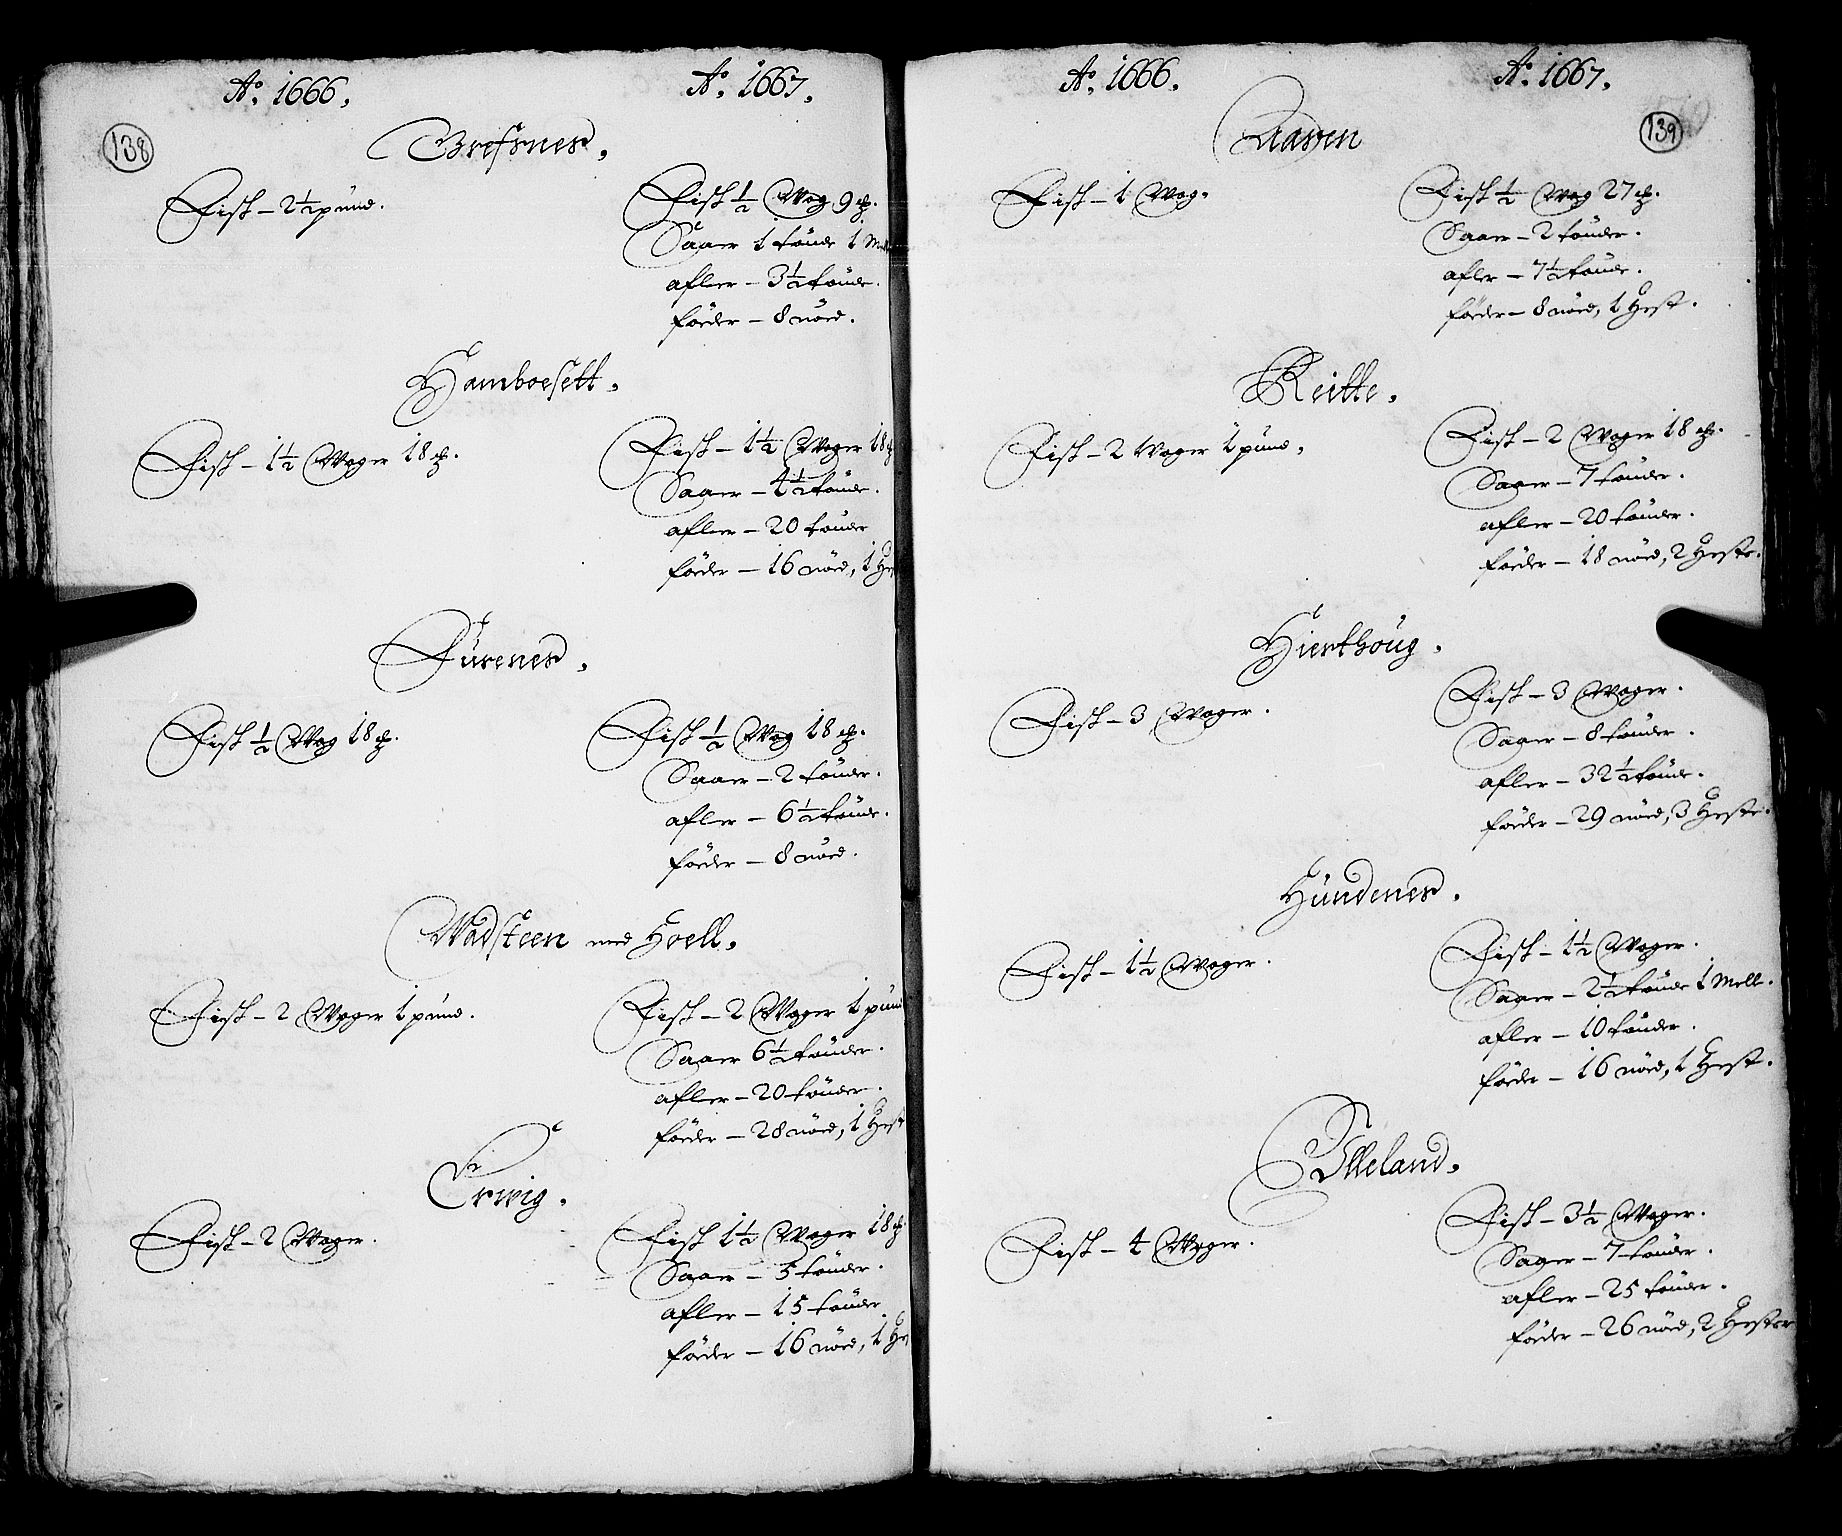 Ao. 1666. Ao. 1667.
138
Bresnes.
Fisk – 2½ pund.
Fisk ½ Wog 9 ℔.
Saaer 1 tønde 1 Mell
afler – 3½ tønde.
føeder – 8 nøed.
Hamboesett.
Fisk – 1½ Woger 18 ℔.
Fisk – 1½ Woger 18 ℔
Saaer – 4½ tønde.
afler – 20 tønder
føeder – 16 nøed, 1 Hes
Furenes.
Fisk ½ Wog 18 ℔.
Fisk ½ Wog 18 ℔.
Saaer – 2 tønder.
afler – 6½ tønde.
føeder – 8 nøed.
Wadsteen med Hoell.
Fisk – 2 Woger 1 pund.
Fisk – 2 Woger 1 pund
Saaer 6½ tønder.
afler – 20 tønder.
føeder – 28 nøed, 1 Hest
Erwig.
Fisk – 2 Woger.
Fisk 1½ Woger 18 ℔.
Saaer – 5 tønder.
afler – 15 tønder.
føeder – 16 nøed, 1 Hes
Ao. 1666. Ao. 1667.
139
Aasen
Fisk – 1 Wog.
Fisk ½ Wog 27 ℔.
Saaer – 2 tønder.
afler – 7½ tønde.
føeder – 8 nøed, 1 Hest.
Reitte.
Fisk – 2 Woger 1 pund.
Fisk – 2 Woger 18 ℔.
Saaer – 7 tønder.
afler – 20 tønder.
føeder – 18 nøed, 2 Heste.
Hierthoug.
Fisk – 3 Woger.
Fisk – 3 Woger.
Saaer – 8 tønder.
afler – 32½ tønde.
føeder – 29 nøed, 3 Heste.
Hundenes.
Fisk – 1½ Woger.
Fisk – 1½ Woger.
Saaer – 2½ tønde 1 Mell.
afler – 10 tønder.
føeder – 16 nøed, 1 Hest.
Ytteland.
Fisk – 4 Woger.
Fisk – 3½ Woger.
Saaer – 7 tønder.
afler – 25 tønder.
føeder – 26 nøed, 2 Hester